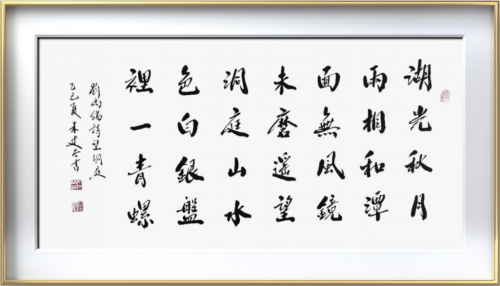 湖光秋月
兩相和潭
面無風鏡
未磨遙望
洞庭山水
色白銀盤
裡一青螺
劉禹錫詩望洞庭
乙巳夏